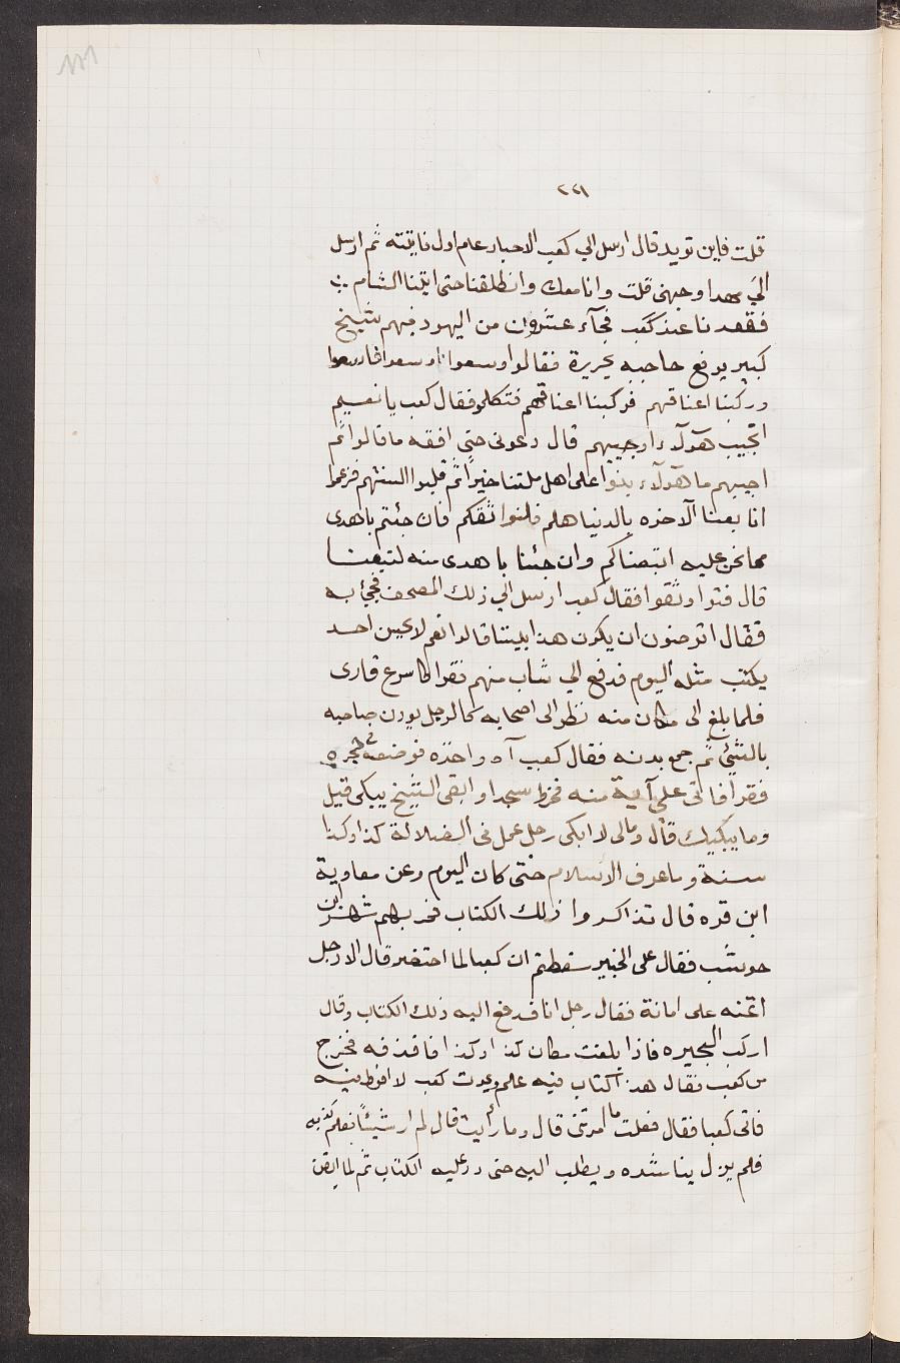 ٢٢١
قلت فاين تريد قال ارسل الي كعب الاحبار عام اول فاتيته ثم ارسل
الي وجهني قلت وانا معك وانطلقنا حتى اتينا الشام
فقعدنا عند كعب فجآء عشرون من اليهود فيهم شيخ
كبير يرفع حاجبه بحريرة فقالوا اوسعوا اوسعوا فاوسعوا
وركبنا اعناقهم فركبنا اعناقهم فتكلموا فقال كعب يا نعيم
اتجيب هؤلآء او اجيبهم قال دعوني حتى افقه ما قالوا ثم
اجيبهم ما هؤلآء اثنوا على اهل ملتنا خيراً ثم قلبوا السنتهم فزعموا
انا بعنا الآخره بالدنيا هلم فلنوا ثقكم فان جئتم باهدى
مما نحن عليه اتبعناكم وان جئنا باهدى منه لتتبعنا
قال فتواوثقوا فقال كعب ارسل الي ذلك المصحف فجيئ به
فقال اترضون ان يكون هذا بيننا قالوا نعم لا يحسن احد
يكتب مثله اليوم فدفع الي شاب منهم فقرا كاسرع قارى
فلما بلغ الى مكان منه نظر الى اصحابه كالرجل يوذن صاحبه
بالشيئ ثم جمع يديه فقال كعب آه واخذه فوضعه في حجره
فقرا فاتى على آية منه فخروا سجدا وابقى الشيخ يبكى قيل
وما يبكيك قال ومالى لا ابكى رجل عمل فى الضلالة كذا وكذا
سنة وما عرف الاسلام حتى كان اليوم وعن معاوية
ابن قره قال تذاكروا ذلك الكتاب فمر بهم شهر ابن
حوشب فقال على الخبير سقطتم ان كعبا لما احتضر قال الا رجل
اتمنه على امانة فقال رجل انا فدفع اليه ذلك الكتاب وقال
اركب البحيره فاذا بلغت مكان كذا وكذا فاقذفه فخرج
من كعب فقال هذا كتاب فيه علم ويموت كعب لا افرط فيه
فاتى كعبا فقال فعلت ما امرتنى قال وما رأيت قال لم ار شيئاً فعلم كذبه
فلم يزل يناشده ويطلب اليه حتى رد عليه الكتاب ثم لما ايقن